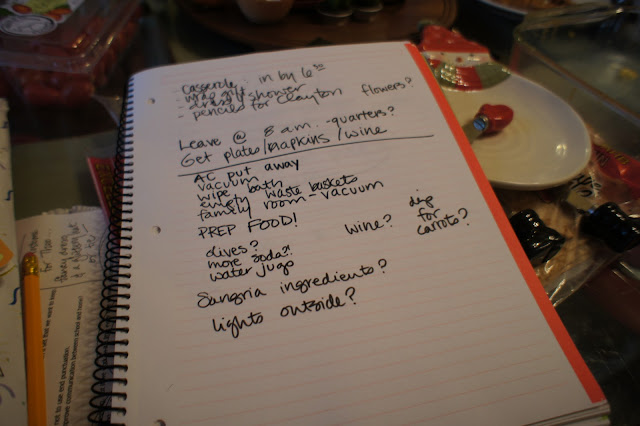 casserole: in by 6³⁰
- wrap gift
- dress, shower flowers?
- pencils for Clayton
Leave @ 8 am - quarters?
Get plates/napkins/wine
AC put away
vacuum
wipe bath
empty waste baskets
family room - vacuum
PREP FOOD!
dip
wine? for
carrots?
olives?
more soda?!
water jugs
Sangria ingredients?
lights outside?
not to use end punctuation.